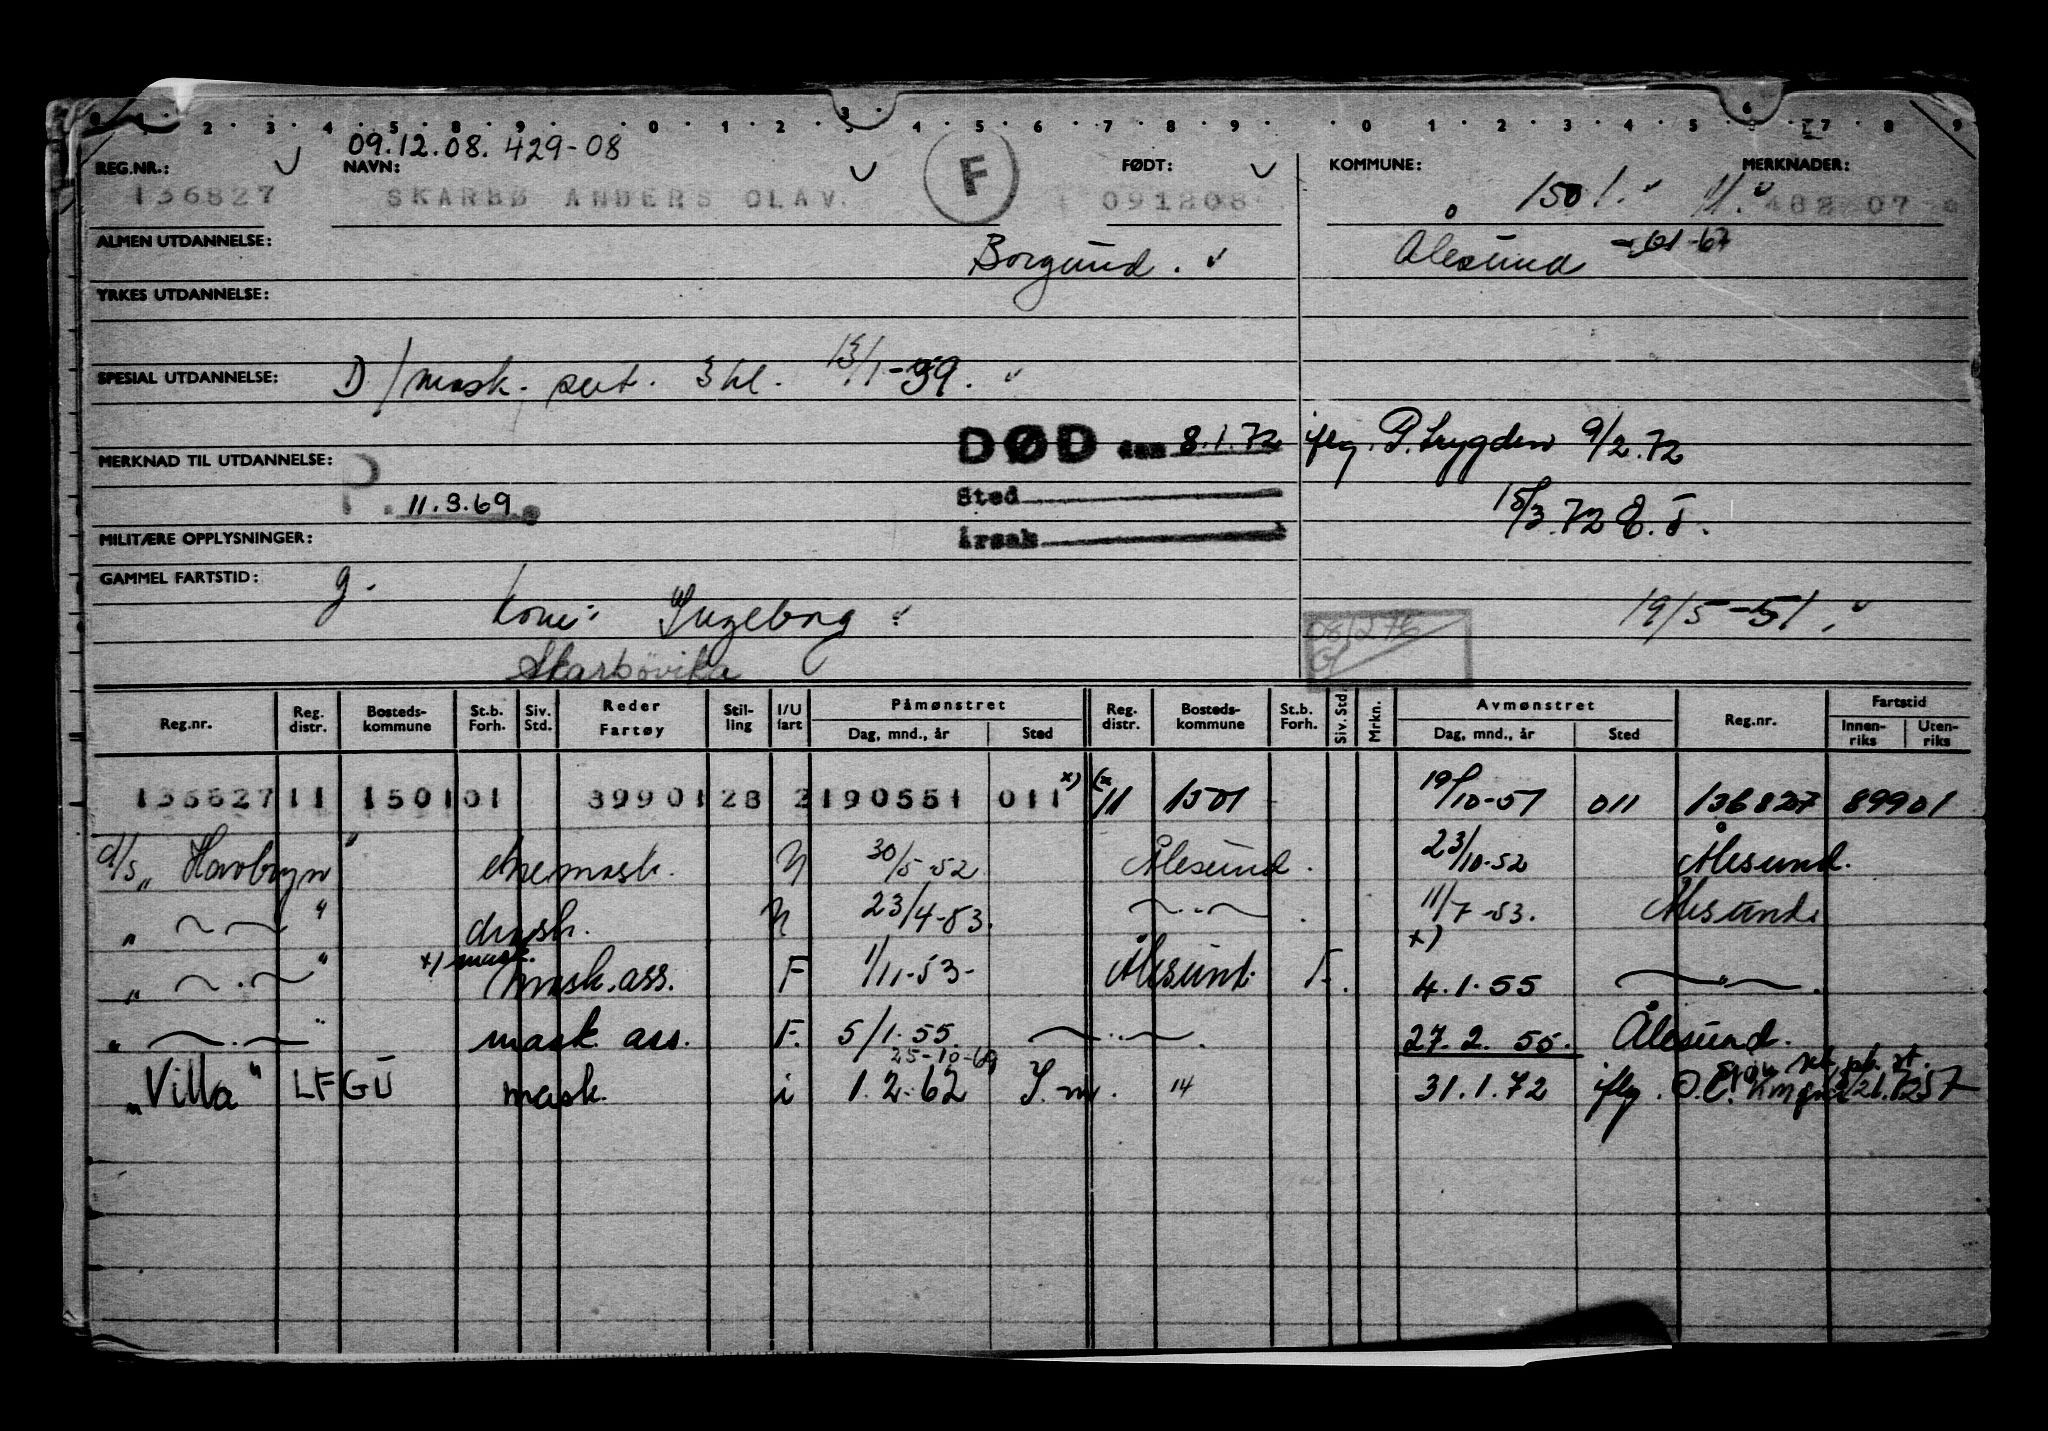 0 1 2 3 4 5 8 9 0 1 2 3 4 5 6 7 8 9 0 1 2 3 4 5 6 7 8 9
09.12.08. 429-08
REG.NR.: NAVN: FØDT: KOMMUNE: MERKNADER:
136827 SKARBØ ANDERS OLAV. F 091208 1501. 11. 482 07
ALMEN UTDANNELSE: Borgund. Ålesund -01-67
YRKES UTDANNELSE:
SPESIAL UTDANNELSE: D/mask. sert. 3 kl. 13/1-39.
DØD den 8.1.72 iflg. P.trygden 9/2.72
MERKNAD TIL UTDANNELSE:
P. 11.3.69. Sted 15/3.72 E.T.
MILITÆRE OPPLYSNINGER: Årsak
GAMMEL FARTSTID: g.
Kone: Ingeborg 19/5-51.
Skarbövika
Reg.nr. Reg. distr. Bosteds-kommune St.b. Forh. Siv. Std. Reder Fartøy Stil-ling I/U fart Påmønstret Dag, mnd., år Sted Reg. distr. Bosteds-kommune St.b. Forh. Siv. Std. Mrkn. Avmønstret Dag, mnd., år Sted Reg.nr. Fartstid Innen-riks Uten-riks
136827 11 1501 01 89901 28 2 190551 011 x) (x 11 1501 19/10-51 011 136827 89901
d/s "Havbryn" N 30/5-52 Ålesund. 23/10-52 Ålesund.
" — " N 23/4-53. — " — . 11/7-53. Ålesund.
" — " x) mask. mask. ass. F 1/11-53- Ålesund. F. x) 4.1.55 — " — .
" — " mask ass. F. 5/1.55. — " — . 27.2.55. Ålesund.
25-10-69
"Villa" LFGU mask. i 1.2.62 S.m. 14 31.1.72 iflg.